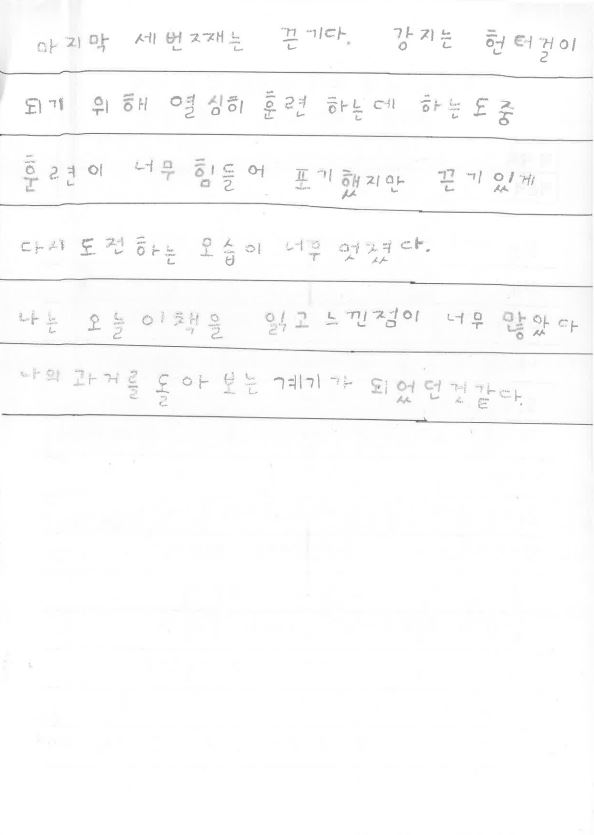 마지막 세번째는 끈기다. 강지는 헌터걸이
되기 위해 열심히 훈련 하는데 하는도중
훈련이 너무 힘들어 포기했지만 끈기있게
다시 도전하는 모습이 너무 멋졌다.
나는 오늘 이책을 읽고 느낀점이 너무 많았다
나의 과거를 돌아 보는 계기가 되었던것같다.